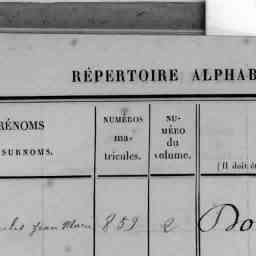 RÉPERTOIRE ALPHAB
RÉNOMS
SURNOMS.
NUMÉROS
ma-
tricules.
NU-
MÉRO
du
volume.
(Il doit ê
Jean Marie 859 2 Do